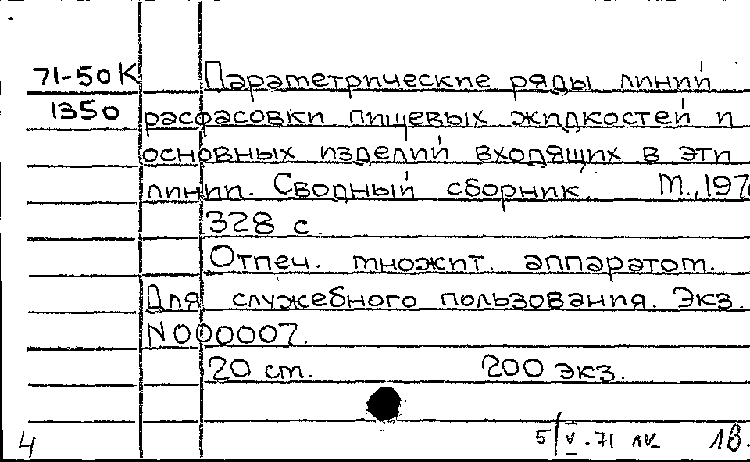 71-50К Параметрические ряды линий
1350 расфасовки пищевых жидкостей и
основных изделий входящих в эти
линии. Сводный сборник. М.,197
328 с.
Отпеч. множит. аппаратом.
Для служебного пользования. Экз.
N000007.
20 см. 200 экз.
4 5/V.71 18.